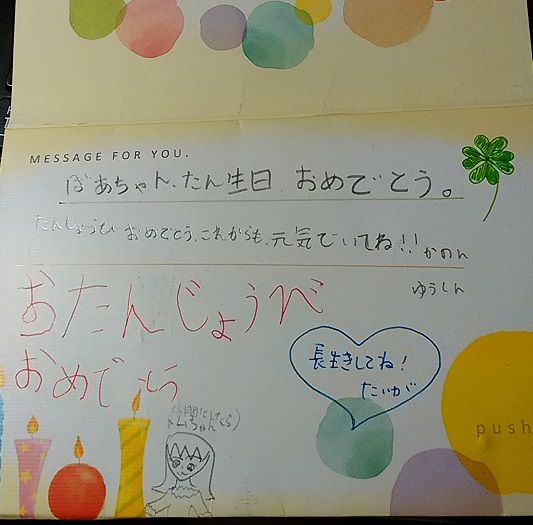 MESSAGE FOR YOU.
ばあちゃん、たん生日 おめでとう。
たんじょうび おめでとう、これからも、元気でいてね!! かのん
ゆうしん
おたんじょうび
おめでとう
長生きしてね!
たいが
ちゃん
push